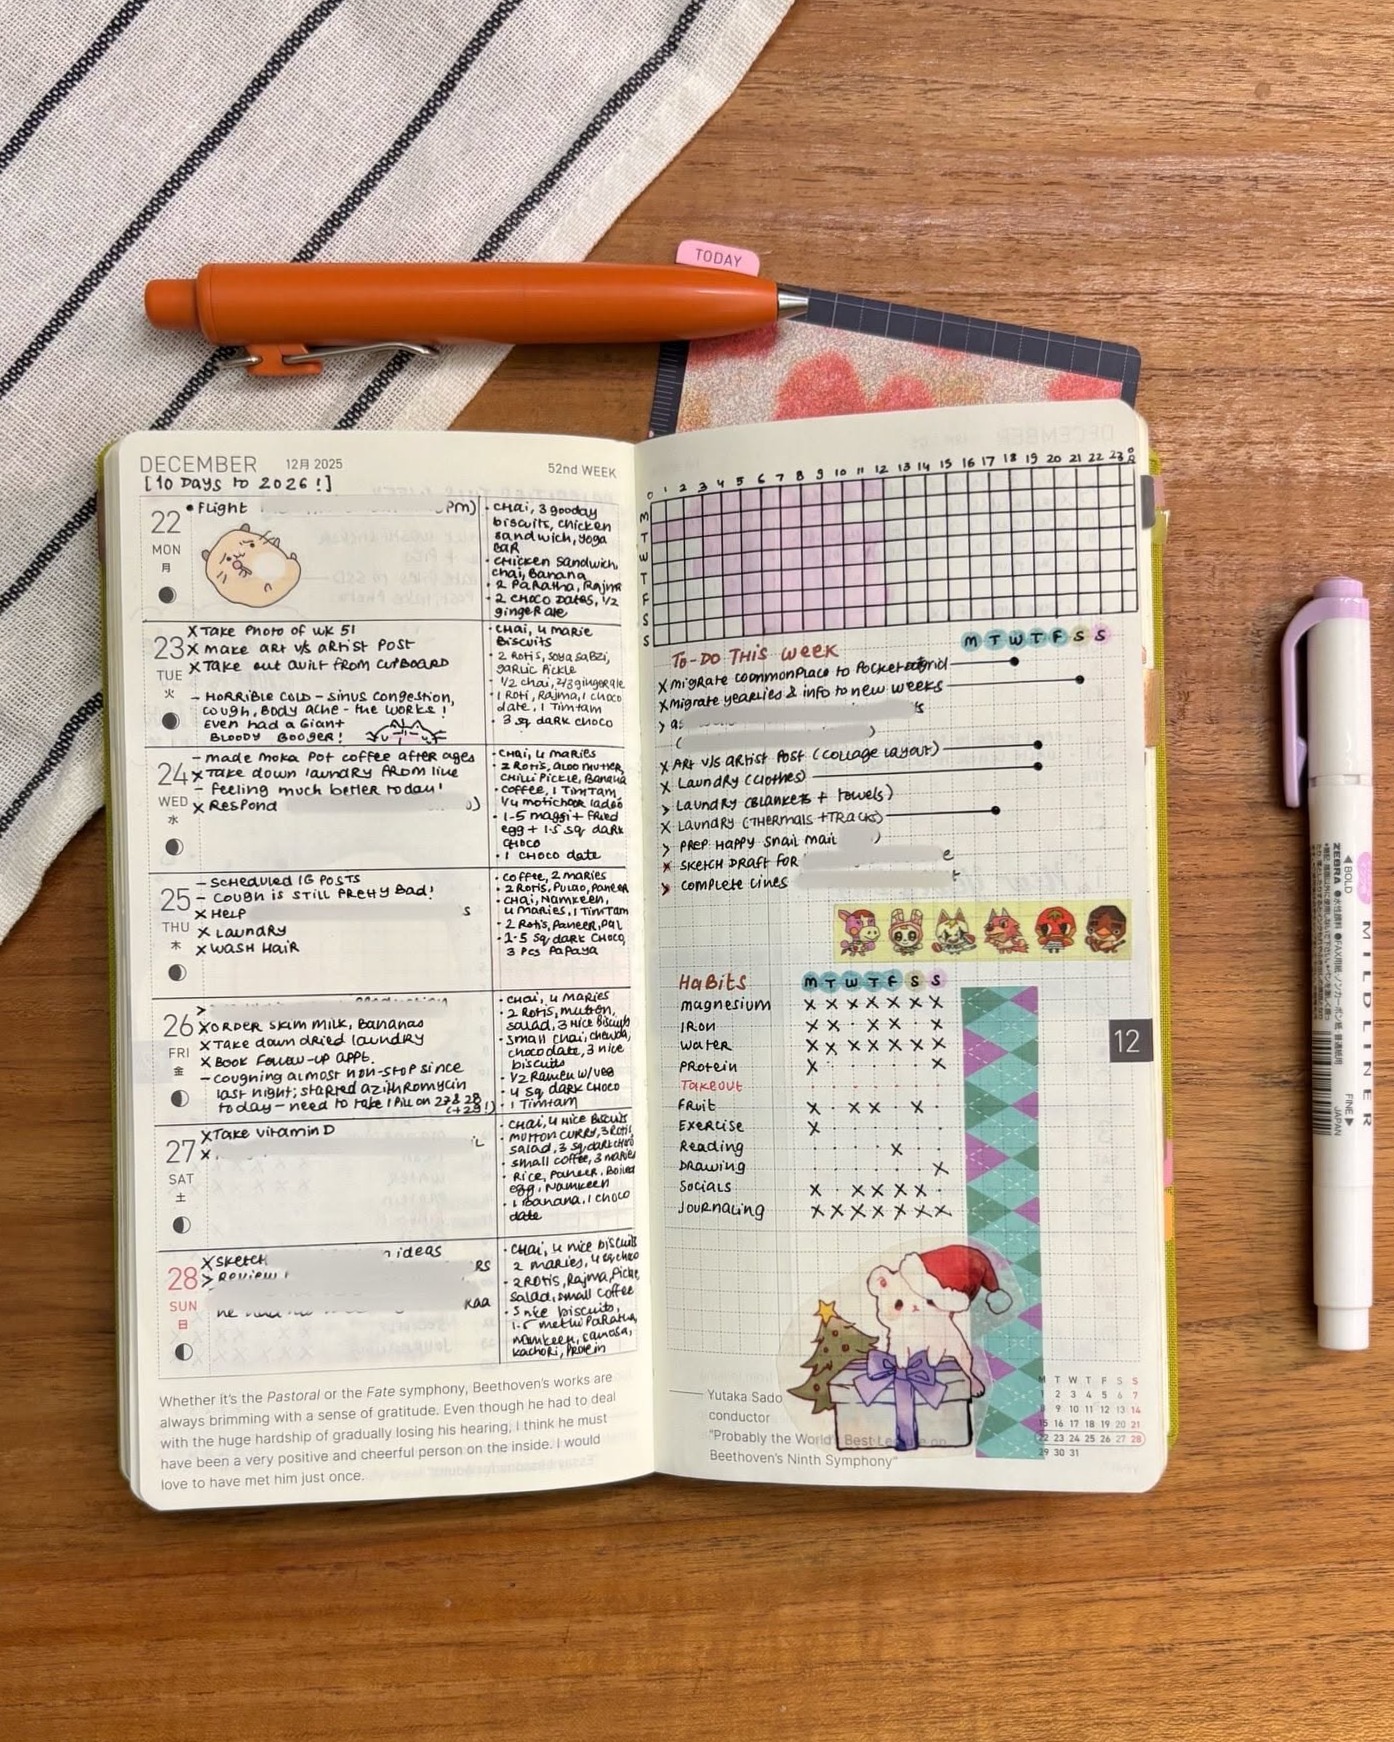 TODAY
DECEMBER 12月 2025
52nd WEEK
[10 Days to 2026!]
22
MON
月
• Flight pm)
• CHai, 3 gooday
biscuits, chicken
sandwich, yoga
BaR
• CHicken Sandwich,
chai, Banana
• 2 PaRatha, Rajma
• 2 CHOCO Dates, 1/2
gingeRale
23
TUE
火
X Take Photo of wk 51
X make aRt v/s aRtist Post
X Take out quilt from cupBoaRD
– HoRRiBle colD – sinus congestion,
cough, Body ache – the woRks!
Even haD a Giant
BLooDy BoogeR!
• CHai, 4 maRie
Biscuits
• 2 Rotis, soya saBzi,
gaRlic Pickle
• 1/2 chai, 2/3 gingeRale
• 1 Roti, Rajma, 1 choco
date, 1 Timtam
• 3 sq daRk choco
24
WED
水
– made moka Pot coffee after ages
X Take down laundRy fRom line
– feeling much better today!
X Respond
• CHai, 4 maRies
• 2 Rotis, aloo mutteR,
CHilli Pickle, Banana
• coffee, 1 TimTam
1/4 motichooR ladoo
• 1.5 maggi + fRied
egg + 1.5 sq daRk
CHoco
• 1 CHoco date
25
THU
木
– Scheduled IG Posts
– Cough is still PRetty Bad!
X HelP s
X LaundRy
X wasH HaiR
• coffee, 2 maRies
• 2 Rotis, Pulao, PaneeR
• CHai, Namkeen,
4 maRies, 1 TimTam
• 2 Rotis, PaneeR, Dal
• 1.5 sq daRk CHoco,
3 Pcs PaPaya
26
FRI
金
>
X oRdeR skim milk, Bananas
X Take down dRied laundRy
X Book Follow-up appt.
– coughing almost non-stop since
last night; staRted azithRomycin
today – need to take 1 Pill on 27 & 28
(+29!)
• CHai, 4 maRies
• 2 Rotis, mutton,
salad, 3 Nice Biscuits
• small chai, chevda,
choco date, 3 nice
biscuits
• 1/2 Ramen w/veg
• 4 sq daRk CHoco
• 1 Timtam
27
SAT
土
X Take vitamin D
X
• CHai, 4 Nice Biscuits
• mutton cuRRy, 3 Roti,
salad, 3 sq daRk choco
• small coffee, 3 maRies
• Rice, PaneeR, Boiled
egg, Namkeen
• 1 Banana, 1 choco
date
28
SUN
日
X Sketch ideas
> Review Rs
kaa
• CHai, 4 nice biscuits
2 maRies, 4 sq choco
• 2 Rotis, Rajma, Pickle
salad, small coffee
• 5 nice biscuits,
1.5 methi PaRatha,
namkeen, samosa,
kachoRi, PRotein
Whether it's the Pastoral or the Fate symphony, Beethoven's works are
always brimming with a sense of gratitude. Even though he had to deal
with the huge hardship of gradually losing his hearing, I think he must
have been a very positive and cheerful person on the inside. I would
love to have met him just once.
0 1 2 3 4 5 6 7 8 9 10 11 12 13 14 15 16 17 18 19 20 21 22 23 0
M
T
W
T
F
S
S
To-Do This Week
M T W T F S S
X migRate commonPlace to Pocket
X migRate yeaRlies & info to new weeks
X ARt v/s aRtist Post (collage layout)
X LaundRy (clothes)
> LaundRy (Blankets + towels)
X LaundRy (THeRmals + TRacks)
> PReP HaPPy Snail mail )
SKetcH DRaft foR e
> comPlete lines
Habits
M T W T F S S
magnesium X X X X X X X
IRon X X · X X · X
WateR X X X X X X X
PRotein X · · · · · X
Takeout
FRuit X · X X · X ·
ExeRcise X
Reading · · · · X · ·
DRawing · · · · · · X
Socials X · X X X X ·
JouRnaling X X X X X X X
12
Yutaka Sado
conductor
"Probably the World's Best Lecture on
Beethoven's Ninth Symphony"
M T W T F S S
1 2 3 4 5 6 7
8 9 10 11 12 13 14
15 16 17 18 19 20 21
22 23 24 25 26 27 28
29 30 31
◀BOLD
ZEBRA
MILDLINER
FINE▶
JAPAN